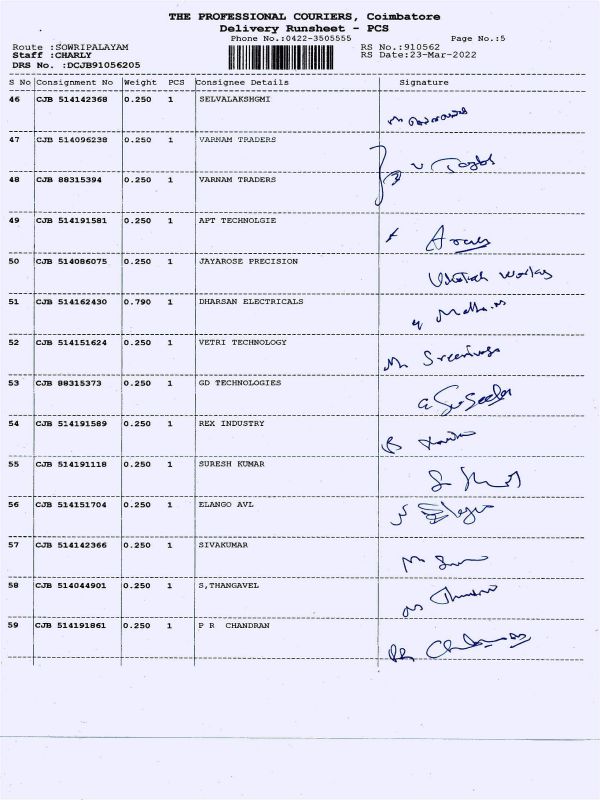 THE PROFESSIONAL COURIERS, Coimbatore
Delivery Runsheet - PCS
Phone No.:0422-3505555 Page No.:5
Route :SOWRIPALAYAM RS No.:910562
Staff :CHARLY RS Date:23-Mar-2022
DRS No. :DCJB91056205
S No Consignment No Weight PCS Consignee Details Signature
46 CJB 514142368 0.250 1 SELVALAKSHGMI
47 CJB 514096238 0.250 1 VARNAM TRADERS
48 CJB 88315394 0.250 1 VARNAM TRADERS
49 CJB 514191581 0.250 1 APT TECHNOLGIE
50 CJB 514086075 0.250 1 JAYAROSE PRECISION
51 CJB 514162430 0.790 1 DHARSAN ELECTRICALS
52 CJB 514151624 0.250 1 VETRI TECHNOLOGY
53 CJB 88315373 0.250 1 GD TECHNOLOGIES
54 CJB 514191589 0.250 1 REX INDUSTRY
55 CJB 514191118 0.250 1 SURESH KUMAR
56 CJB 514151704 0.250 1 ELANGO AVL
57 CJB 514142366 0.250 1 SIVAKUMAR
58 CJB 514044901 0.250 1 S,THANGAVEL
59 CJB 514191861 0.250 1 P R CHANDRAN